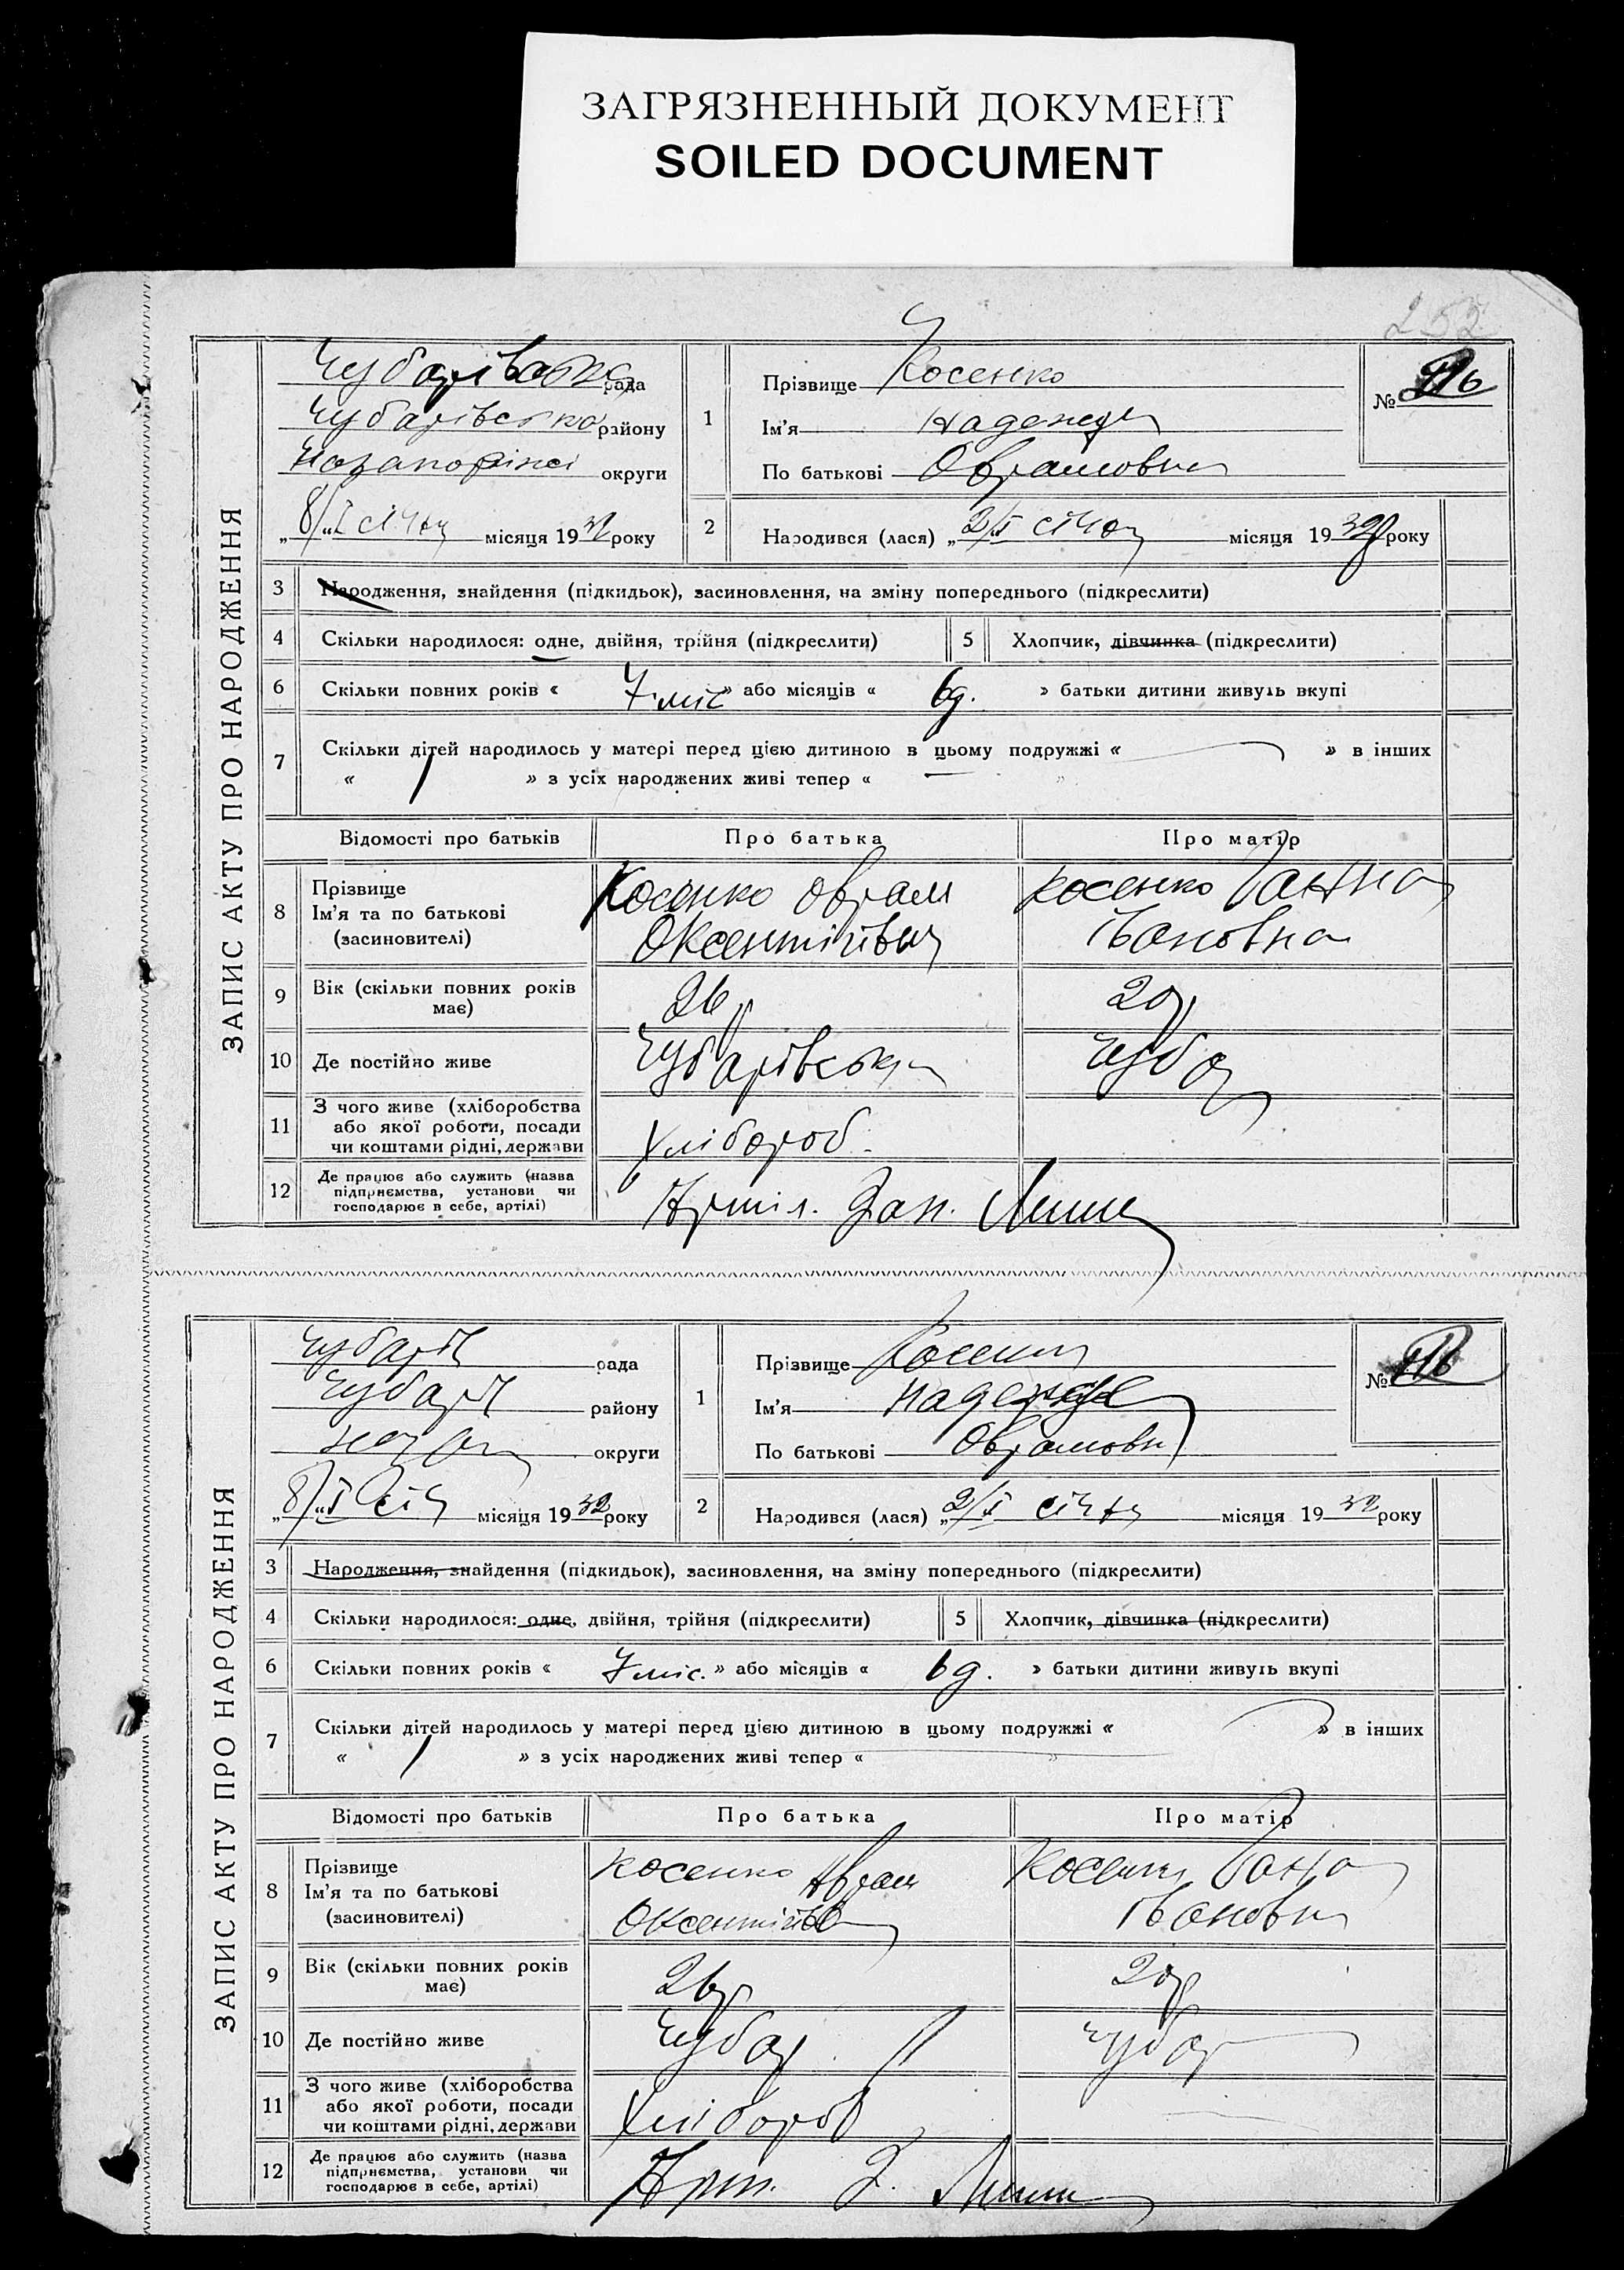 ЗАГРЯЗНЕННЫЙ ДОКУМЕНТ
SOILED DOCUMENT
252
ЗАПИС АКТУ ПРО НАРОДЖЕННЯ
рада
Чубарівсько району
округи
„8/I" січня місяця 1932 року
1
Прізвище Косенко
Ім'я Надежда
По батькові Оврамовна
№
2
Народився (лася) „2/I" січня місяця 1932 року
3 Народження, знайдення (підкидьок), засиновлення, на зміну попереднього (підкреслити)
4 Скільки народилося: одне, двійня, трійня (підкреслити)
5 Хлопчик, дівчинка (підкреслити)
6 Скільки повних років « 7 міс » або місяців « 6д. » батьки дитини живуть вкупі
7 Скільки дітей народилось у матері перед цією дитиною в цьому подружжі « — » в інших
« 1 » з усіх народжених живі тепер « »
Відомості про батьків Про батька Про матір
8 Прізвище
Ім'я та по батькові
(засиновителі)
Косенко Оврам
Оксентіївич
Косенко Ганна
Івановна
9 Вік (скільки повних років
має)
26 р
20 р
10 Де постійно живе
Чубарівську
Чубар
11 З чого живе (хліборобства
або якої роботи, посади
чи коштами рідні, держави
Хлібороб.
12 Де працює або служить (назва
підприємства, установи чи
господарює в себе, артілі)
Артіл. Зап.
ЗАПИС АКТУ ПРО НАРОДЖЕННЯ
Чубарів рада
Чубарів району
округи
„8/I" січ місяця 1932 року
1
Прізвище Косенко
Ім'я Надежда
По батькові Оврамовн
№
2
Народився (лася) „2/I" січня місяця 1932 року
3 Народження, знайдення (підкидьок), засиновлення, на зміну попереднього (підкреслити)
4 Скільки народилося: одне, двійня, трійня (підкреслити)
5 Хлопчик, дівчинка (підкреслити)
6 Скільки повних років « 7 міс. » або місяців « 6д. » батьки дитини живуть вкупі
7 Скільки дітей народилось у матері перед цією дитиною в цьому подружжі « — » в інших
« 1 » з усіх народжених живі тепер « — »
Відомості про батьків Про батька Про матір
8 Прізвище
Ім'я та по батькові
(засиновителі)
Косенко Аврам
Оксентіїв
Косенко Ганна
Івановн
9 Вік (скільки повних років
має)
26 р
20 р
10 Де постійно живе
Чубар
Чубар
11 З чого живе (хліборобства
або якої роботи, посади
чи коштами рідні, держави
Хлібороб
12 Де працює або служить (назва
підприємства, установи чи
господарює в себе, артілі)
Арт. З.